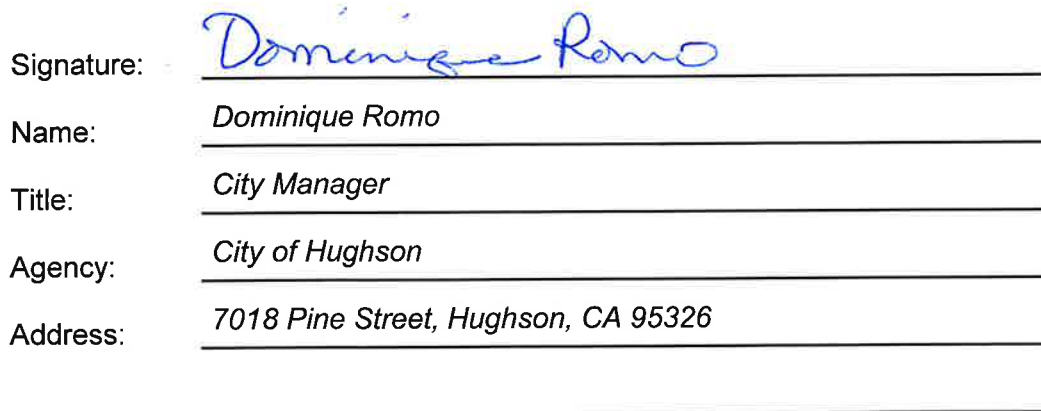 Signature: Dominique Romo
Name: Dominique Romo
Title: City Manager
Agency: City of Hughson
Address: 7018 Pine Street, Hughson, CA 95326